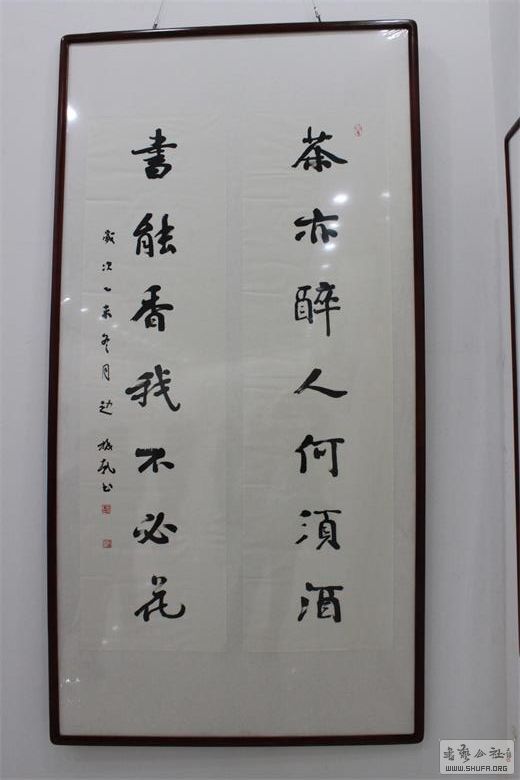 茶亦醉人何须酒
書能香我不必花
歲次乙未冬月
書藝公社
WWW.SHUFA.ORG